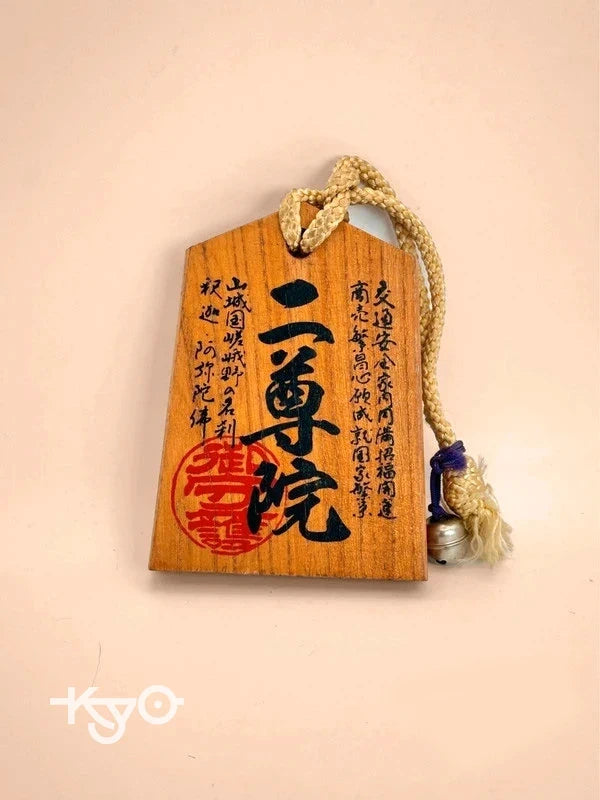 交通安全家内円満招福開運
商売繁昌心願成就国家繁栄
二尊院
山城国嵯峨野の名刹
釈迦 阿弥陀佛
御守護
Kyo